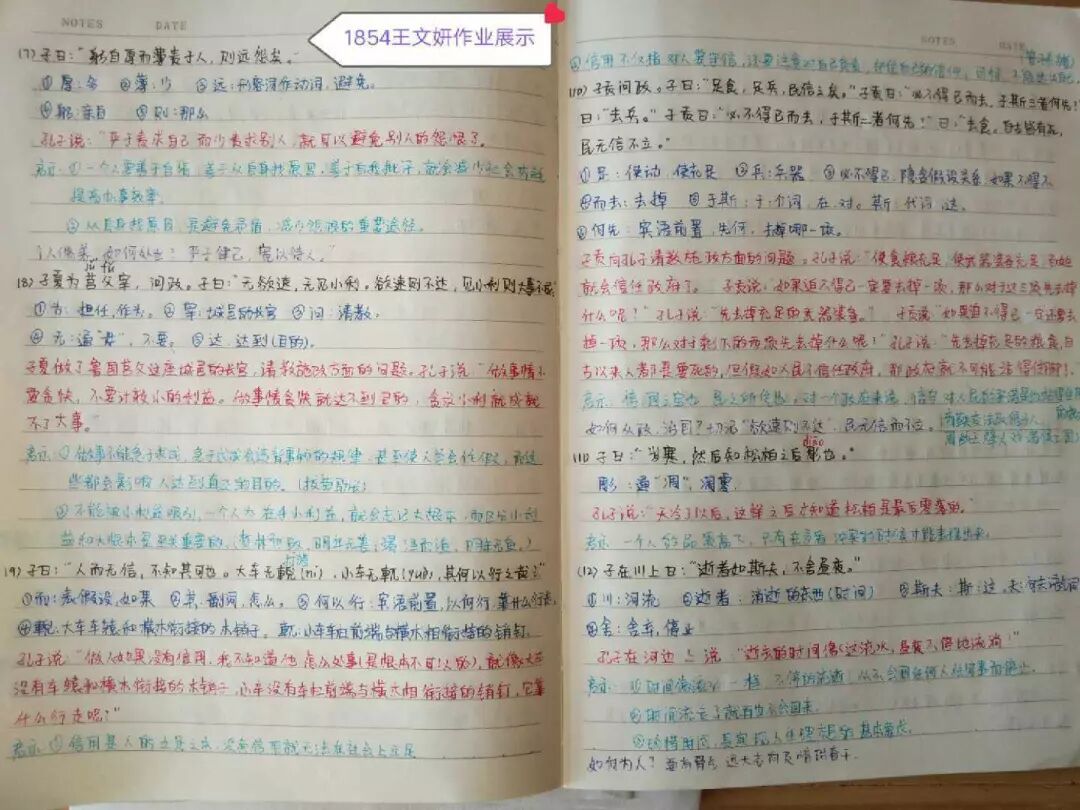 NOTES DATE
1854王文妍作业展示
(7)子曰："躬自厚而薄责于人，则远怨矣。"
①厚：多 ②薄：少 ③远：形容词作动词，避免。
④躬：亲自 ⑤则：那么
孔子说："严于责求自己而少责求别人，就可以避免别人的怨恨了。
启示：①一个人要善于自省，善于从自身找原因，善于自我批评，就会减少社会
提高办事效率。
②从自身找原因，是避免矛盾，减少怨恨的重要途径。
如何处世？严于律己，宽以待人。"
jǔ fǔ
(8)子夏为莒父宰，问政。子曰："无欲速，无见小利。欲速则不达，见小利则大事不成
①为：担任，作为。②宰：城邑的长官 ③问：请教。
④无：通"毋"，不要。⑤达：达到(目的)。
子夏做了鲁国莒父这座城邑的长官，请教施政方面的问题。孔子说："做事情不
要贪快，不要计较小的利益。做事情贪快就达不到目的，贪求小利就成就
不了大事。
启示：①做事不能急于求成，急于求成会违背事物的规律，甚至使人
些都会影响人达到真正的目的。(拔苗助长)
②不能被小利益吸引，一个人
(9)子曰："人而无信，不知其可也。大车无輗(ní)，小车无軏(yuè)，其何以行之哉？"
①而：表假设，如果 ②其：副词，怎么。③何以行：宾语前置，以何行，靠什么行走
④輗：大车车辕和横木衔接的木销子。軏：小车车辕前端与横木相衔接的销钉。
孔子说："做人如果没有信用，我不知道他怎么处事(是根本不可以的)，就像大车
没有车辕和横木衔接的木销子，小车没有车辕前端与横木相衔接的销钉，它靠
什么行走呢？"
启示：①信用是人的立身之本，没有信用就无法在社会上立足
NOTES DATE
②信用不仅指对人要守信，还要注意对自己
(10)子贡问政。子曰："足食，足兵，民信之矣。"子贡曰："必不得已而去，于斯三者何先？
曰："去兵。"子贡曰："必不得已而去，于斯二者何先？"曰："去食。自古皆有死，
民无信不立。"
①足：使动，使充足 ②兵：兵器 ③必不得已：隐含假设关系，如果不得不
④而去：去掉 ⑤于斯：于：介词，在，对。斯：代词，这。
⑥何先：宾语前置，先何，去掉哪一项。
子贡向孔子请教施政方面的问题。孔子说："使食粮充足，使武器装备充足，百姓
就会信任政府了。"子贡说："如果迫不得已一定要去掉一项，那么对于这三项先去掉
什么呢？"孔子说："先去掉充足的武器装备。"子贡说"如果迫不得已一定还要去
掉一项，那么对于剩下的两项先去掉什么呢！"孔子说："先去掉充足的粮食，自
古以来人都是要死的，但假如人民不信任政府，那政府就不可能站得住脚！"
如何从政，治国？切忌"欲速则不达"，民无信而不立。
diāo
(11)子曰："岁寒，然后知松柏之后彫也。"
彫：通"凋"，凋零。
孔子说："天冷了以后，这样之后才知道松柏是最后零落的。"
启示：一个人的品质高下，只有在
(12)子在川上曰："逝者如斯夫，不舍昼夜。"
①川：河流 ②逝者：消逝的东西(时间) ③斯夫：斯：这。夫：句末语气词
④舍：舍弃，停止
孔子在河边上说："逝去的时间像这流水，昼夜不停地流淌！"
启示：①时间像流水一样，不停的流逝，从不会因任何人任何事而停止。
②时间流走了就再也不会回来。